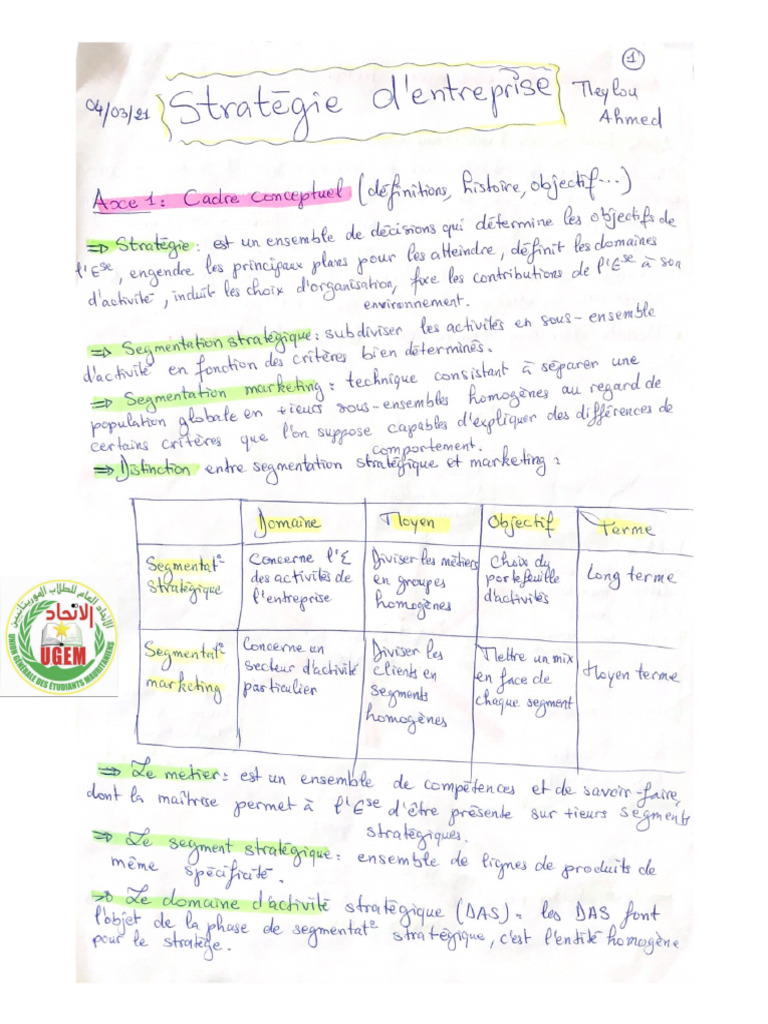 1
04/03/21
Stratégie d'entreprise
Meylou
Ahmed
Axe 1: Cadre conceptuel (définitions, histoire, objectif...)
=> Stratégie: est un ensemble de décisions qui détermine les objectifs de
l'Ese, engendre les principaux plans pour les atteindre, définit les domaines
d'activité, induit les choix d'organisation, fixe les contributions de l'Ese à son
environnement.
=> Segmentation stratégique: subdiviser les activités en sous-ensemble
d'activité en fonction des critères bien déterminés.
=> Segmentation marketing: technique consistant à séparer une
population globale en +ieurs sous-ensembles homogènes au regard de
certains critères que l'on suppose capables d'expliquer des différences de
comportement.
=> Distinction entre segmentation stratégique et marketing:
Domaine Moyen Objectif Terme
Segmentat° Stratégique
Concerne l'E des activités de l'entreprise
Diviser les métiers en groupes homogènes
Choix du portefeuille d'activités
Long terme
Segmentat° marketing
Concerne un secteur d'activité particulier
Diviser les clients en segments homogènes
Mettre un mix en face de chaque segment
Moyen terme
=> Le métier: est un ensemble de compétences et de savoir-faire,
dont la maîtrise permet à l'Ese d'être présente sur +ieurs segments
stratégiques.
=> Le segment stratégique: ensemble de lignes de produits de
même spécificité.
=> Le domaine d'activité stratégique (DAS): les DAS font
l'objet de la phase de segmentat° stratégique, c'est l'entité homogène
pour le stratège.
الاتحاد العام للطلاب الموريتانيين
الاتحاد
UGEM
UNION GÉNÉRALE DES ÉTUDIANTS MAURITANIENS